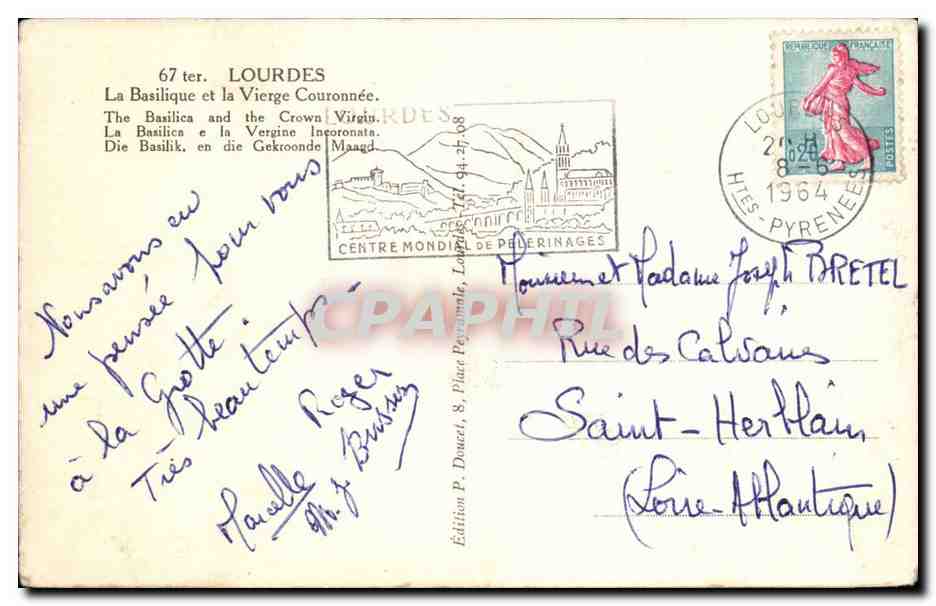 67 ter. LOURDES
La Basilique et la Vierge Couronnée.
The Basilica and the Crown Virgin.
La Basilica e la Vergine Incoronata.
Die Basilik. en die Gekroonde Maagd
Nous avons eu
une pensée pour vous
à la Grotte
Très beau temps
Roger
Marcelle
M. J. Brisson
LOURDES
CENTRE MONDIAL DE PELERINAGES
Édition P. Doucet, 8, Place Peyramale, Lourdes - Tél. 94.27.08
REPUBLIQUE FRANÇAISE
0,20
POSTES
LOURDES
8-6
1964
HTES-PYRENEES
Monsieur et Madame Joseph BRETEL
Rue des Calvaires
Saint-Herblain
(Loire-Atlantique)
CPAPHIL